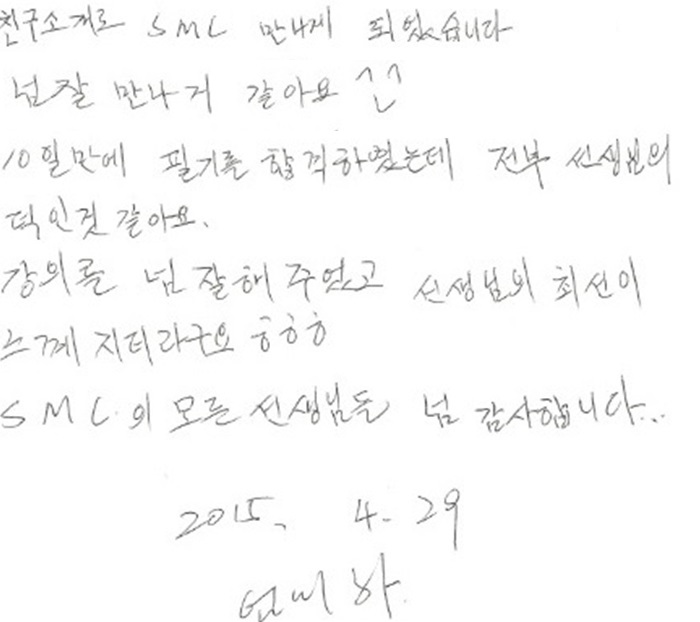 친구소개로 SML 만나게 되었습니다
넘 잘 만나거 같아요 ^^
10일만에 필기를 합격하였는데 전부 선생님의
덕인것 같아요.
강의를 넘 잘해 주었고 선생님의 최선이
느께 지더라구요 ㅎㅎㅎ
SML의 모든 선생님들 넘 감사합니다..
2015. 4. 29